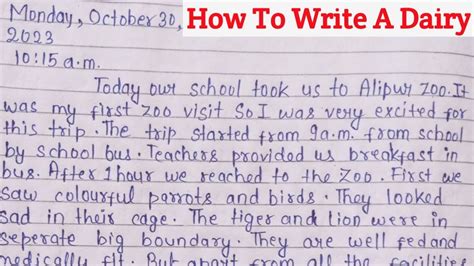 Monday, October 30,
How To Write A Dairy
2023
10:15 a.m.
Today our school took us to Alipur Zoo. It
was my first zoo visit So I was very excited for
this trip. The trip started from 9a.m. from school
by school bus. Teachers provided us breakfast in
bus. After 1 hour we reached to the Zoo. First we
saw colourful parrots and birds. They looked
sad in their cage. The tiger and lion were in
seperate big boundary. They are well fed and
medically fit. But apart from all the facilities